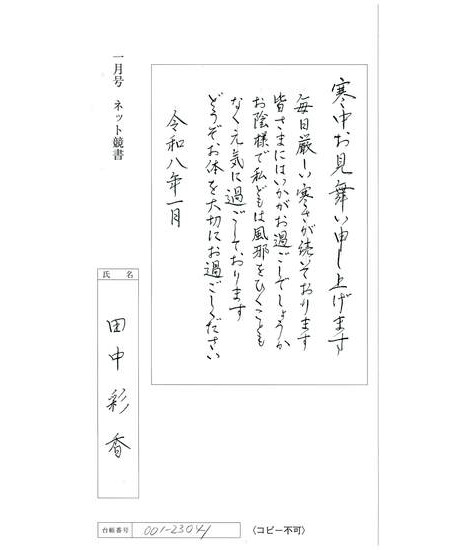 一月号 ネット競書
寒中お見舞い申し上げます
毎日厳しい寒さが続いております
皆さまにはいかがお過ごしでしょうか
お陰様で私どもは風邪をひくことも
なく元気に過ごしております
どうぞお体を大切にお過ごしください
令和八年一月
氏名
田中彩香
台帳番号 001-2304
〈コピー不可〉